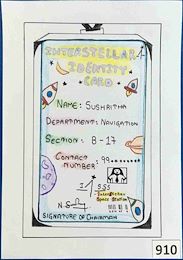 INTERSTELLAR
IDENTITY
CARD
NAME: SUSHRITHA
DEPARTMENT: NAVIGATION
SECTION: B-17
CONTACT
NUMBER: 99..........
Interstellar
Space Station
SIGNATURE OF CHAIRMAN
910